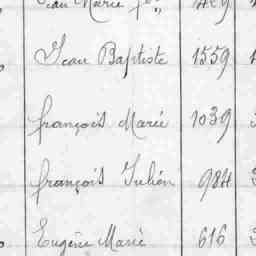 Jean Marie
Jean Baptiste 1559
françois Marie 1039
françois Julien 984
Eugène Marie 616